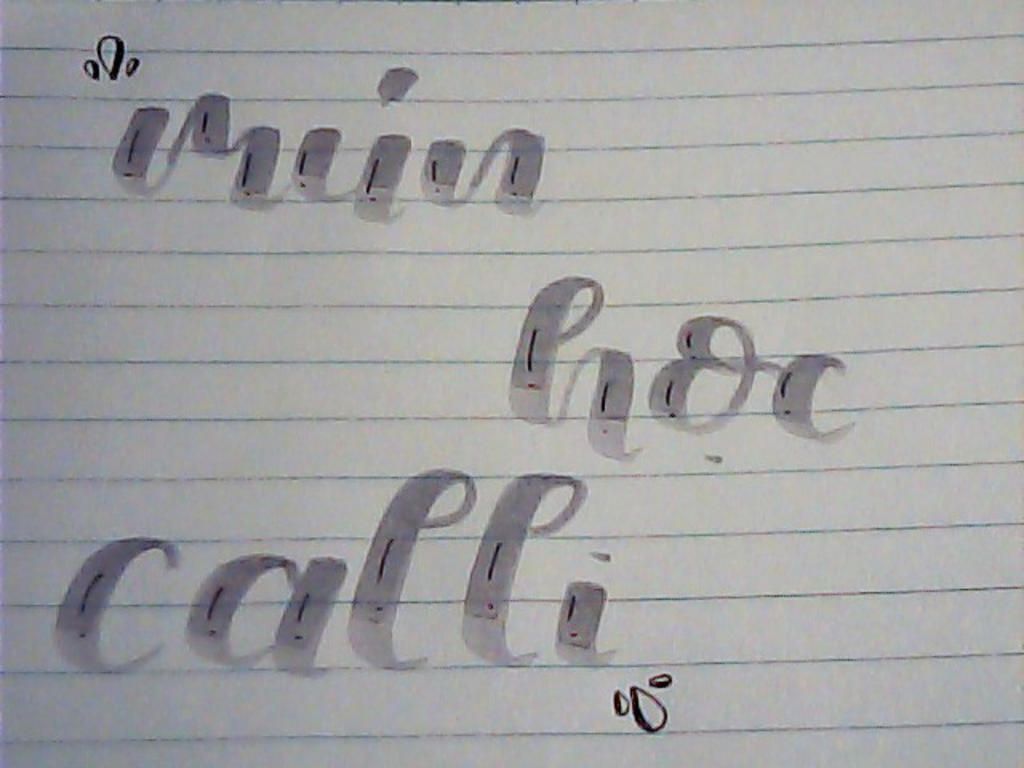 min
học
calli